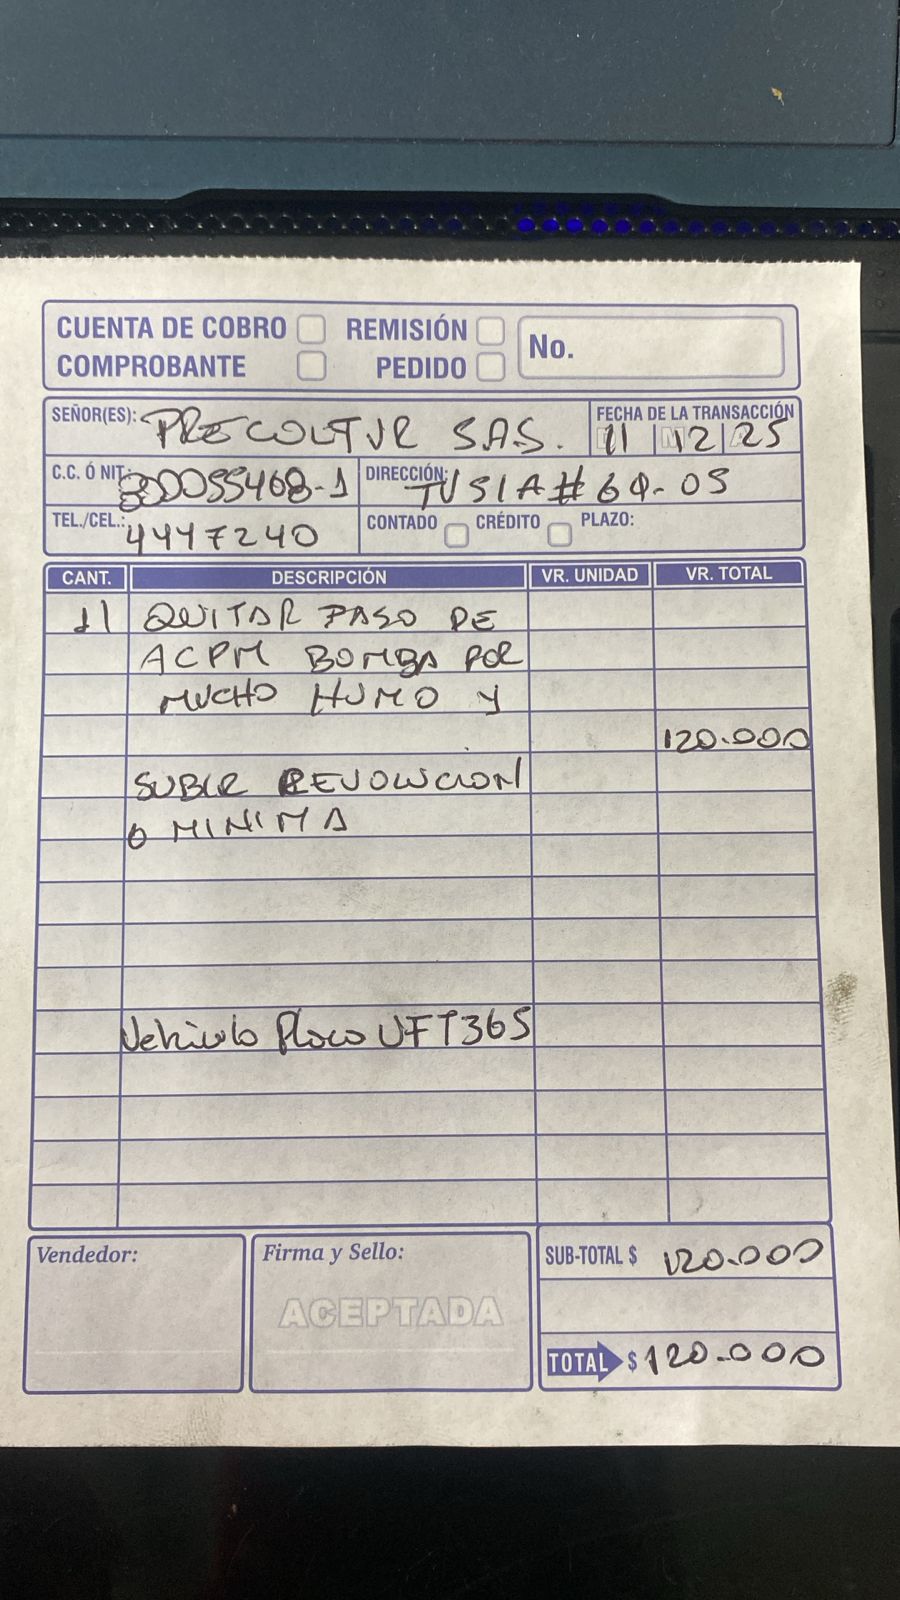 CUENTA DE COBRO REMISIÓN No.
COMPROBANTE PEDIDO
SEÑOR(ES): PRECOLTUR S.A.S. FECHA DE LA TRANSACCIÓN
11 12 25
C.C. Ó NIT: 800055468-1 DIRECCIÓN: TV 51A # 69-05
TEL./CEL.: 4447240 CONTADO CRÉDITO PLAZO:
CANT. DESCRIPCIÓN VR. UNIDAD VR. TOTAL
QUITAR PASO DE
ACPM BOMBA POR
MUCHO HUMO Y
120.000
SUBIR REVOLUCION
O MINIMA
Vehiculo Placa UFT365
Vendedor: Firma y Sello: SUB-TOTAL $ 120.000
ACEPTADA
TOTAL $ 120.000